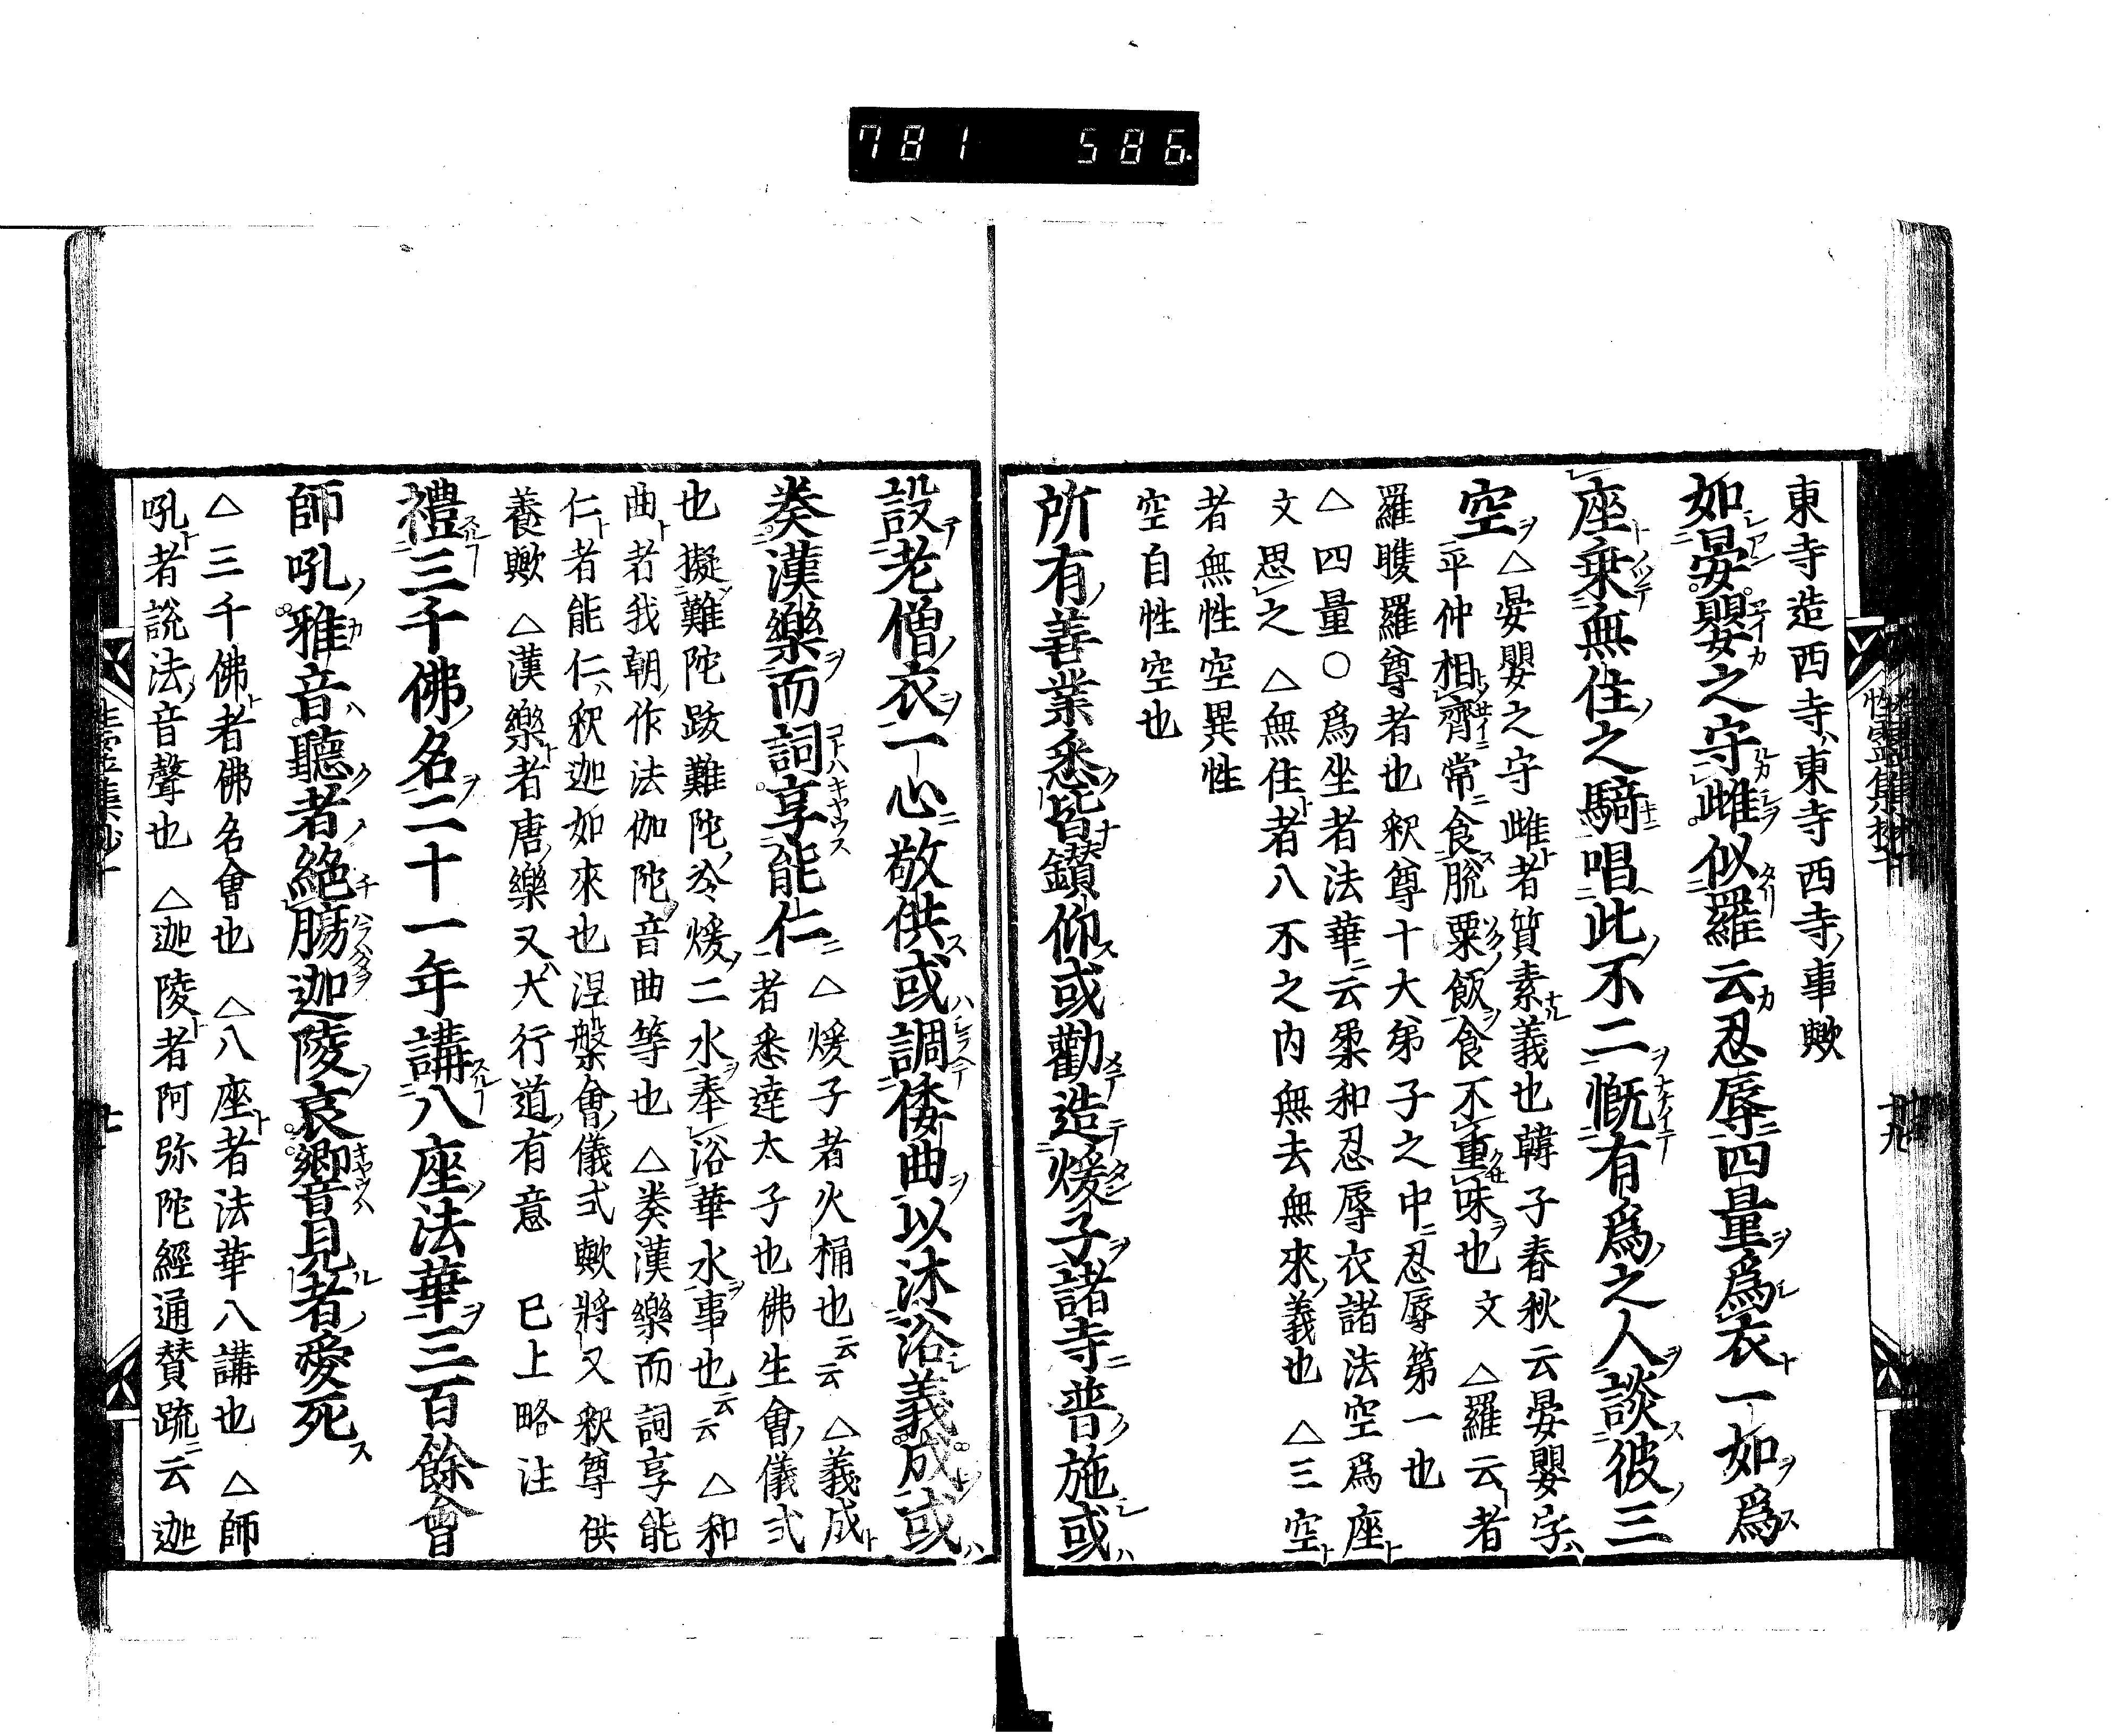 781 586
東寺造西寺東寺西寺ノ事歟
如晏嬰之守雌似羅云忍辱四量爲衣一如爲
座乗無住之騎唱此不二慨有爲之人談彼三
空
△晏嬰之守雌者質素義也韓子春秋云晏嬰字ハ
平仲相齊常食脫粟飯食不重味也 文 △羅云者
羅睺羅尊者也釈尊十大弟子之中忍辱第一也
△四量○爲坐者法華云柔和忍辱衣諸法空爲座
文思之 △無住者八不之内無去無來義也 △三空
者無性空異性
空自性空也
所有善業悉皆鑚仰或勸造煖子諸寺普施或
設老僧衣一心敬供或調倭曲以沐浴義成或
奏漢樂而詞享能仁
△煖子者火桶也云云 △義成
者悉達太子也佛生會儀式
也擬難陀跋難陀冷煖二水奉浴華水事也云云 △和
曲者我朝作法伽陀音曲等也 △奏漢樂而詞享能
仁者能仁釈迦如來也涅槃會儀式歟將又釈尊供
養歟 △漢樂者唐樂又大行道有意 已上略注
禮三千佛名二十一年講八座法華三百餘會
師吼雅音聽者絶膓迦陵哀響見者愛死
△三千佛者佛名會也 △八座者法華八講也 △師
吼者說法音聲也 △迦陵者阿弥陀經通賛疏云迦